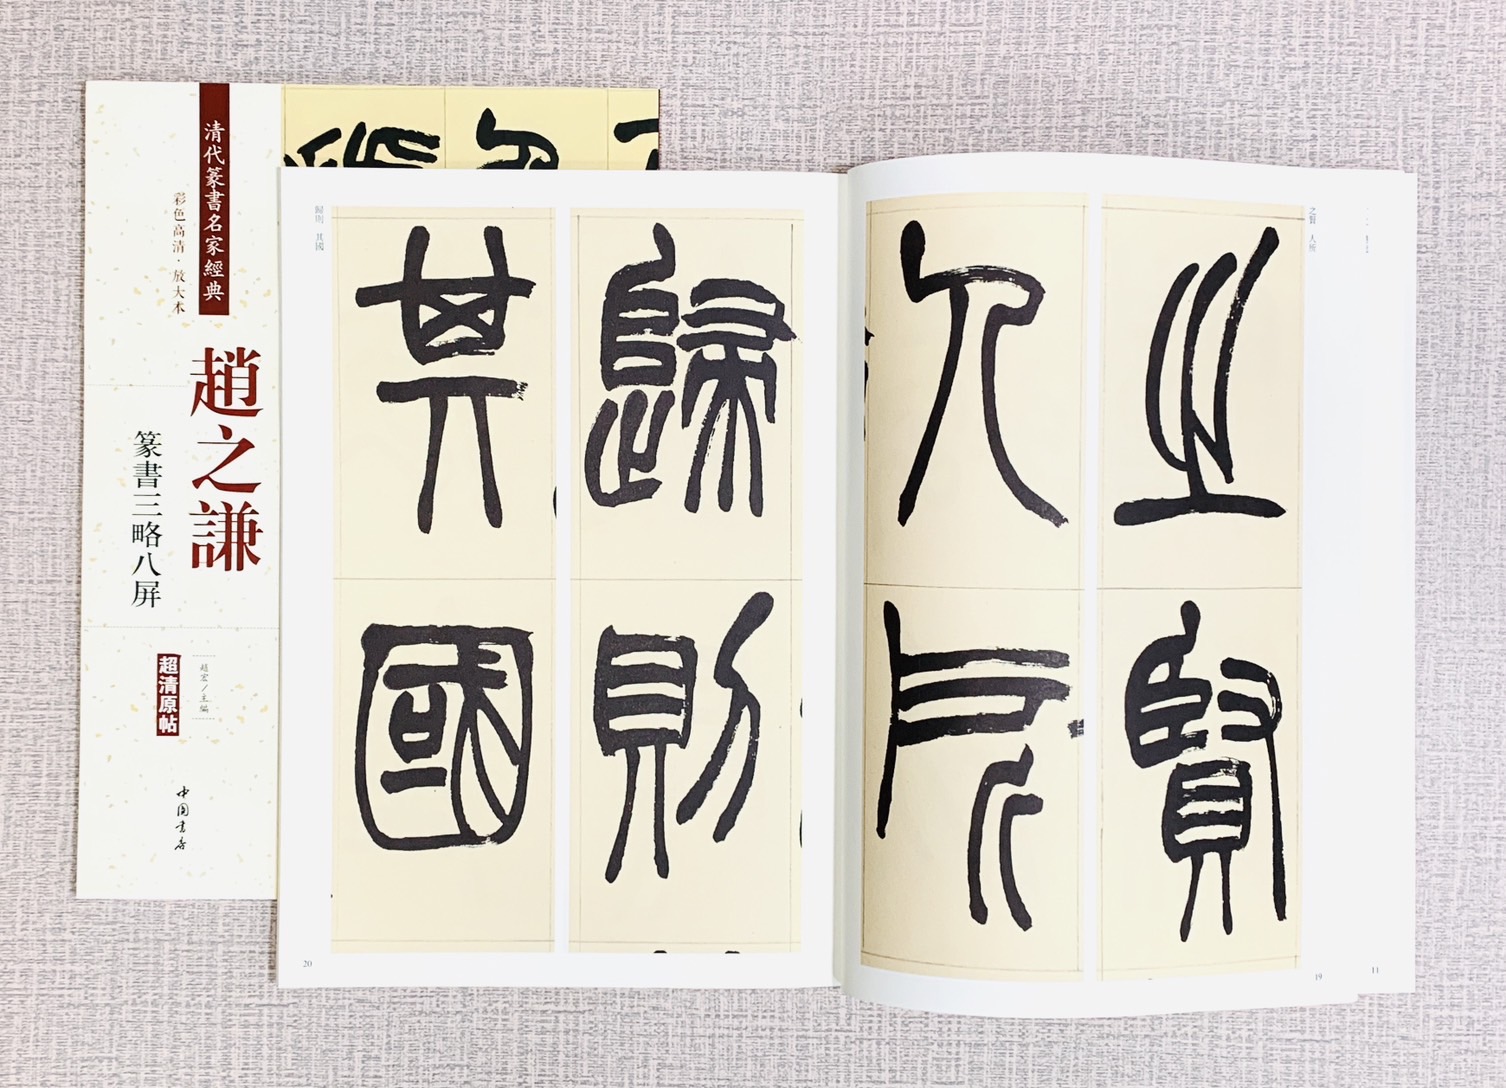 清代篆書名家經典
彩色高清·放大本
趙之謙
篆書三略八屏
趙宏/主編
超清原帖
中国書店
之賢 人所
之賢
人所
19
11
歸則 其國
歸則
其國
20